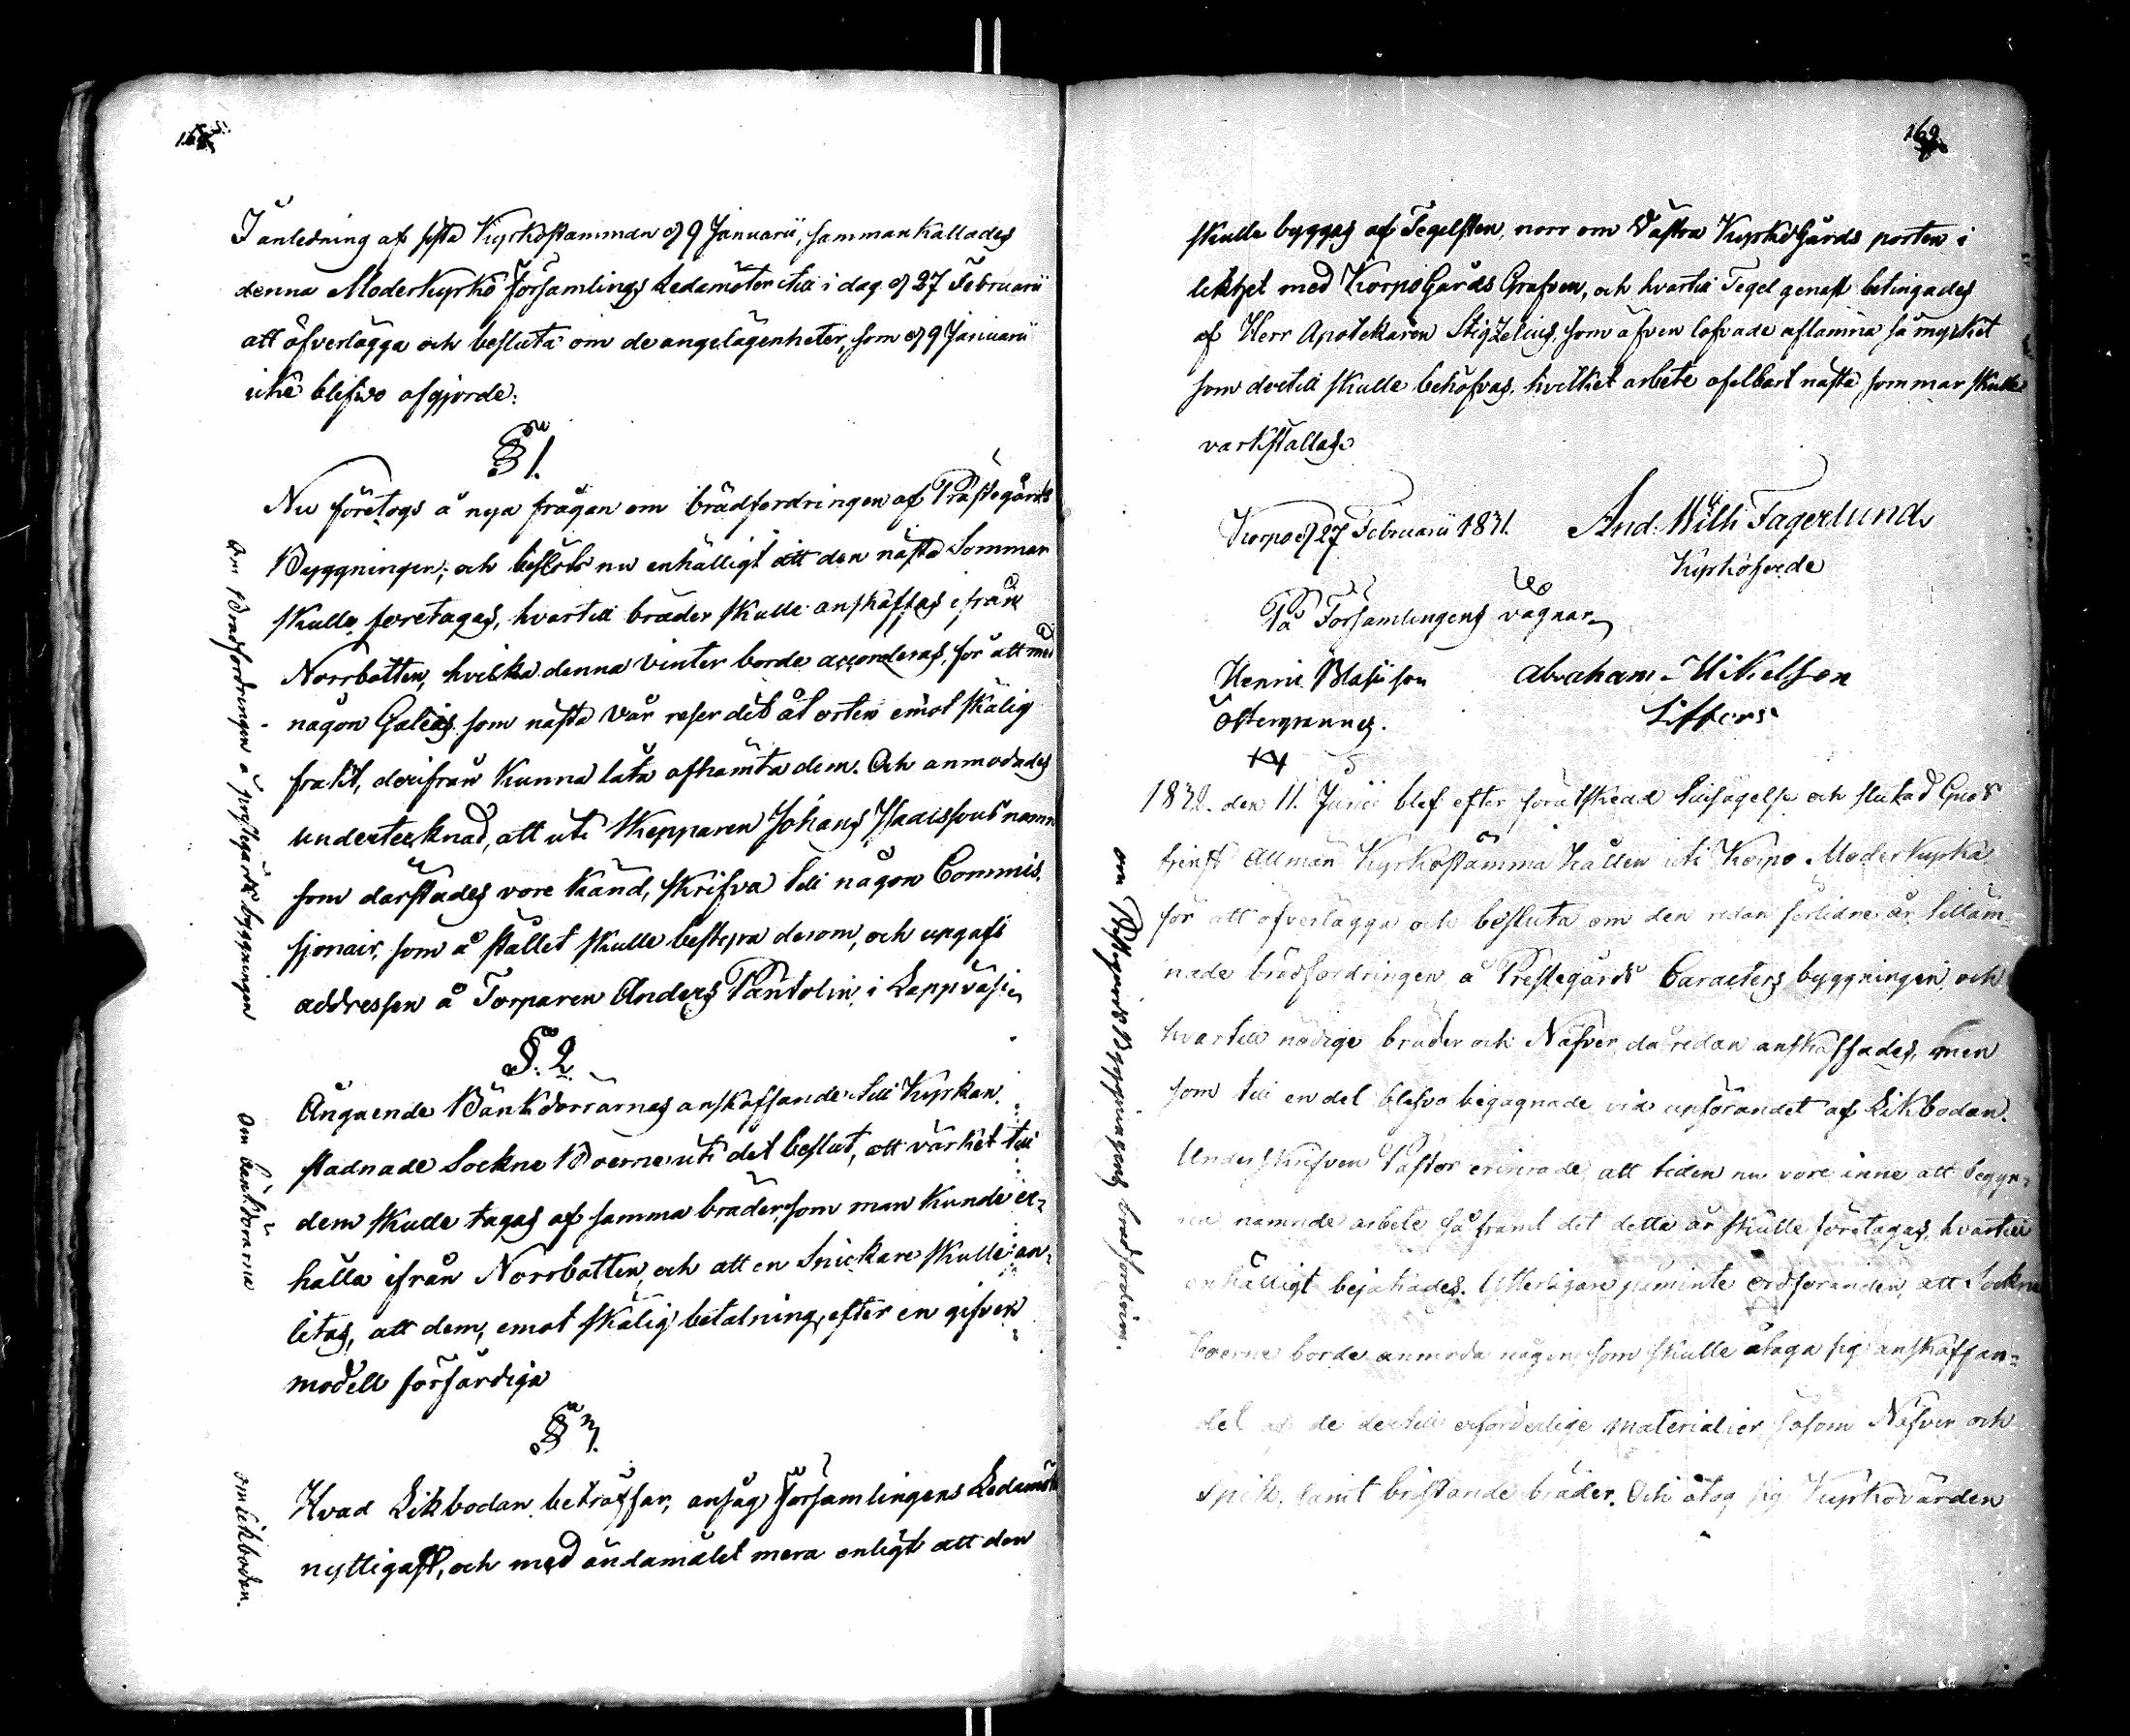 168
I anledning af sista Kyrkostämman d 9 Januarii, sammankallades
denna Moderkyrko Församlings Ledamöter till i dag d 27 Februarii
att öfverlägga och besluta om de angelägenheter, som d 9 Januarii
icke blefvo afgjorde:
§ 1.
Nu företogs å nya frågan om brädfordringen af Prästegårds
Byggningen; och beslöts nu enhälligt att den nästa Sommar
skulle företagas, hvartill bräder skulle anskaffas ifrån
Norrbotten, hvilka denna vinter borde accorderas, för att med
någon Galeas som nästa vår reser dit åt orten emot skälig
frakt, derifrån kunna låta afhämta dem. Och anmodades
undertecknad, att uti Skepparen Johans namn
som därstädes vore känd, skrifva till någon Commis-
sjonair, som å stället skulle bestyra derom, och upgafs
addressen å Torparen Anders Pantolin i Lappväsi
§. 2.
Angående Bänkdörrarnas anskaffande till Kyrkan.
stadnade Sockne Boerne uti det beslut, att värket till
dem skulle tagas af samma bräder som man kunde er-
hålla ifrån Norrbotten, och att en Snickare skulle an-
litas, att dem, emot skälig betalning, efter en gifven
modell förfärdiga
§ 3.
Hvad Likbodan beträffar, ansåg Församlingens Ledamöter
nyttigast, och med ändamålet mera enligt att den
Om Brädfordringen å prestgårds byggningen
Om bänkdörarna
om likboden.
169
skulle byggas af Tegelsten, norr om Västra Kyrkogårds porten i
med KorpoGårds Grafven, och hvartill Tegel genast betingades
af Herr Apotekaren Stigzelius, som äfven lofvade aflämna så mycket
som dertill skulle behöfvas, hvilket arbete ofelbart nästa sommar skulle
värkställas.
Korpo d 27 Februarii 1831. And: Wilh Fagerlund
Kyrkoherde
På Församlingens vägnar
Henric Blasisson Abraham Mikelsson
Östergrannes. Liffors
1832. den 11. Junii blef efter förutskedd och slutad Guds
tjenst Allmän Kyrkostämma hållen uti Korpo Moderkyrka
för att öfverlägga och besluta om den redan förlidne år tilläm-
nade brädfordringen å Prestegårds Caracters byggningen, och
hvartill nödige bräder och Näfver då redan anskaffades, men
som till en del blefvo begagnade vid upförandet af Likbodan.
Underskrifven Pastor erinrade att tiden nu vore inne att begyn-
na nämnde arbete såframt det detta år skulle företagas, hvartill
enhälligt bejakades. Ytterligare påminte ordföranden, att Sockne
boerne borde anmoda någon som skulle åtaga sig anskaffan-
det af de dertill erforderlige materialier såsom Näfver och
Spik, samt bristande bräder. Och åtog sig Kyrkovärden
om Prestgårds Byggningens brädfordring.